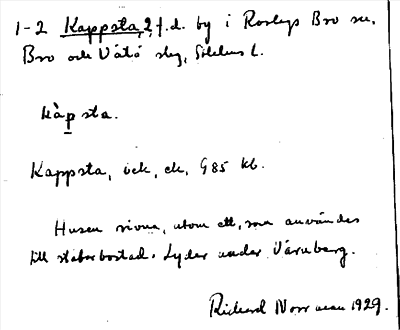 1-2 Kappsta, 2, f.d. by i Roslags Bro sn,
Bro och Vätö skg, Sthlms l.
kàpsta.
Kappsta, JK, EK, G85 Kb.
Husen rivna, utom ett, som användes
till statarbostad. Lyder under Väruberg.
Richard Norrman 1929.